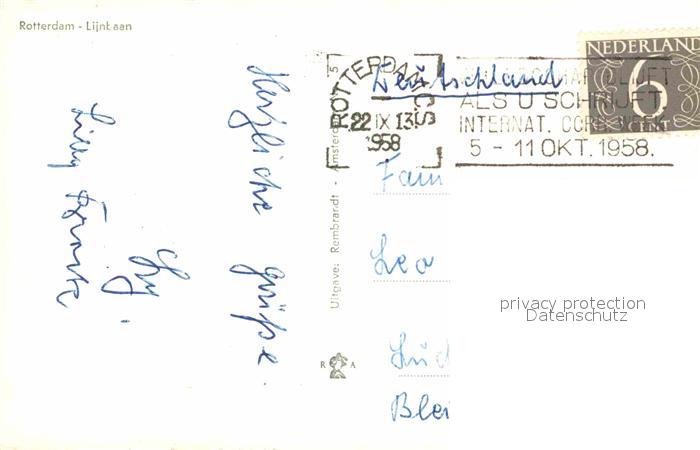 Rotterdam - Lijnbaan
Herzliche Grüße.
Lilly
Uitgave: Rembrandt - Amsterdam
5
R A
ROTTERDAM C.S.
22 IX 13
1958
Deutschland
ALS U SCHRIJFT
INTERNAT. CORR. WEEK
5 - 11 OKT. 1958.
NEDERLAND
6
CENT
Fam
Leo
Lüd
Blei
privacy protection
Datenschutz